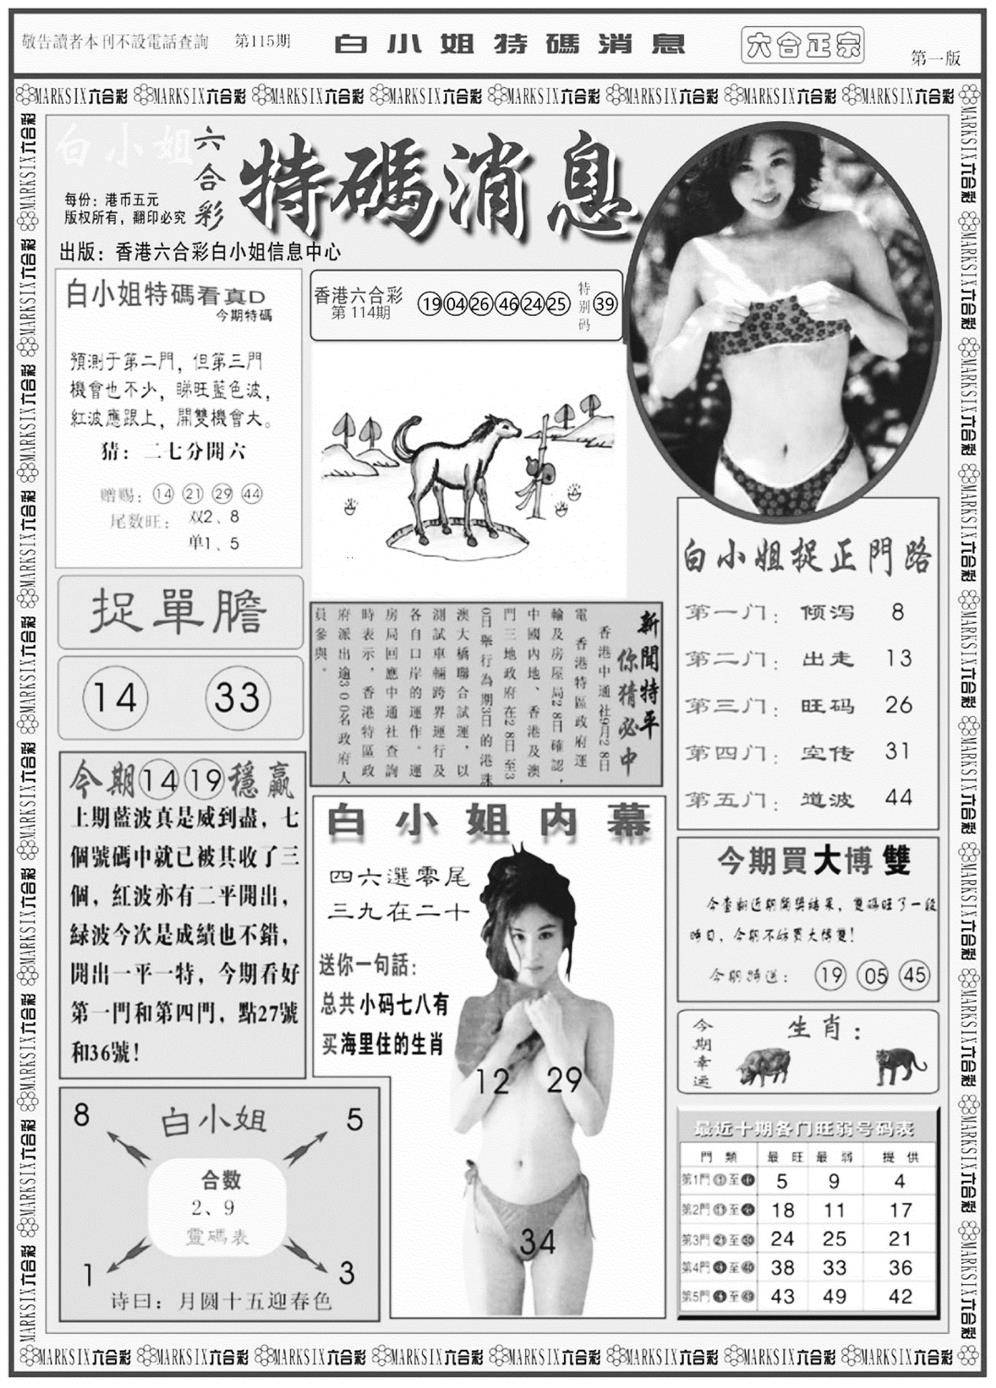 敬告讀者本刊不設電話查詢
第115期
白小姐特碼消息
六合正宗
第一版
MARKSIX六合彩 MARKSIX六合彩 MARKSIX六合彩 MARKSIX六合彩 MARKSIX六合彩 MARKSIX六合彩 MARKSIX六合彩 MARKSIX六合彩
白小姐
六合彩
特碼消息
每份：港币五元
版权所有，翻印必究
出版：香港六合彩白小姐信息中心
白小姐特碼看真D
今期特碼
預測于第二門，但第三門
機會也不少，睇旺藍色波，
紅波應跟上，開雙機會大。
猜：二七分開六
赠赐：14 21 29 44
尾数旺：双2、8
单1、5
香港六合彩
第 114期
19 04 26 46 24 25
特别码
39
捉單膽
14 33
新聞特平
你猜必中
香港中通社9月28日
電 香港特區政府運
輸及房屋局28日確認，
中國内地、香港及澳
門三地政府在28日至3
0日舉行為期3日的港珠
澳大橋聯合試運，以
測試車輛跨界運行及
各自口岸的運作。運
房局回應中通社查詢
時表示，香港特區政
府派出逾300名政府人
員參與。
白小姐捉正門路
第一门：倾泻 8
第二门：出走 13
第三门：旺码 26
第四门：空传 31
第五门：道波 44
今期14 19穩赢
上期藍波真是威到盡，七
個號碼中就已被其收了三
個，紅波亦有二平開出，
緑波今次是成績也不錯，
開出一平一特，今期看好
第一門和第四門，點27號
和36號！
白小姐内幕
四六選零尾
三九在二十
送你一句話：
总共小码七八有
买海里住的生肖
12 29
34
今期買大博雙
今臺翻近期開獎結果，雙碼旺了一段
時日，今期不妨買大博雙！
今期特送：19 05 45
今期幸运
生肖：
白小姐
8 5
合数
2、9
靈碼表
1 3
诗曰：月圆十五迎春色
最近十期各门旺弱号码表
門類 最旺 最弱 提供
第1門 至 5 9 4
第2門 至 18 11 17
第3門 至 24 25 21
第4門 至 38 33 36
第5門 至 43 49 42
MARKSIX六合彩 MARKSIX六合彩 MARKSIX六合彩 MARKSIX六合彩 MARKSIX六合彩 MARKSIX六合彩 MARKSIX六合彩 MARKSIX六合彩